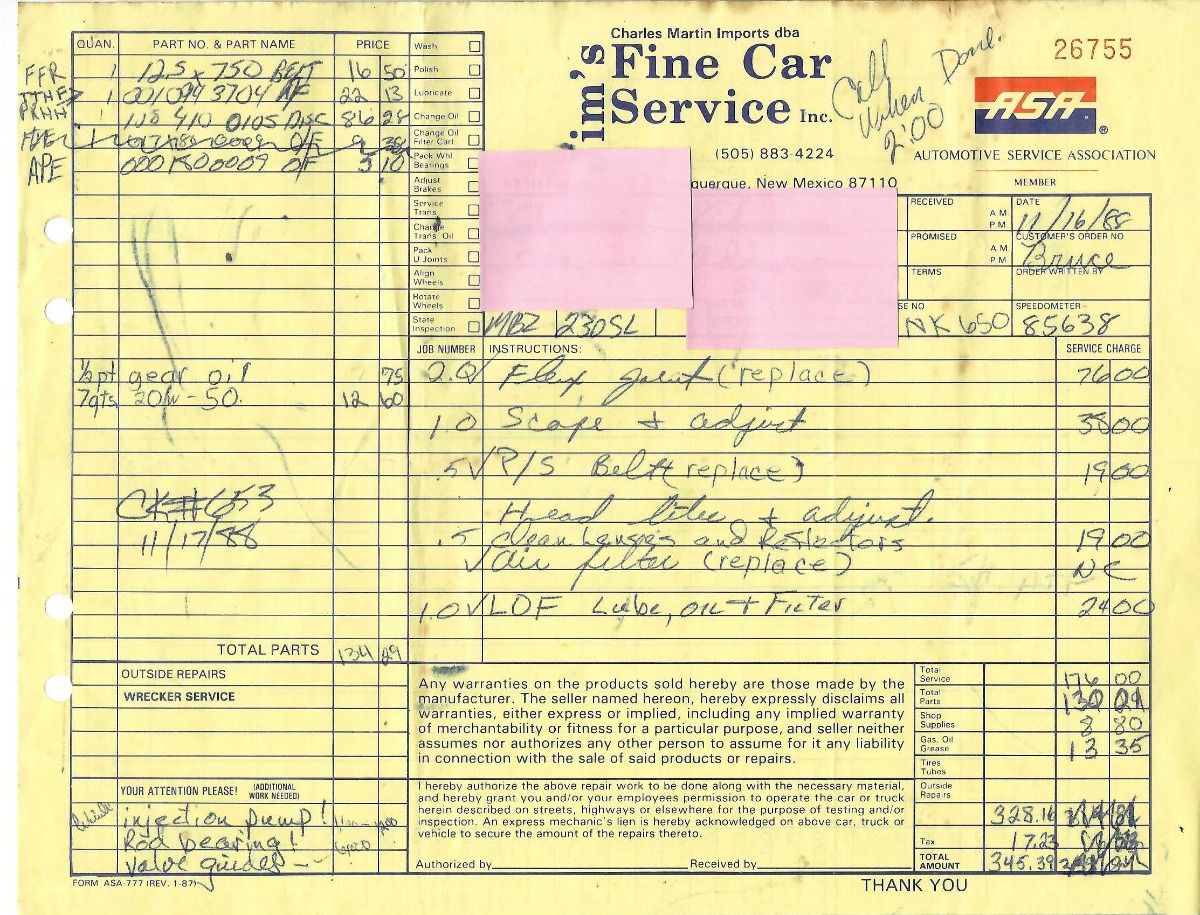 Charles Martin Imports dba
im's Fine Car Service Inc.
Call when Done.
2:00
26755
ASA ®
(505) 883-4224
AUTOMOTIVE SERVICE ASSOCIATION
querque, New Mexico 87110
MEMBER
QUAN. PART NO. & PART NAME PRICE
FFR 1 12.5 x 750 BELT 16 50
1 001094 3704 AF 22 13
1 410 0105 DISC 86 28
O/F 9
APE 0001800009 O/F 5 10
Wash
Polish
Lubricate
Change Oil
Change Oil Filter Cart.
Pack Whl Bearings
Adjust Brakes
Service Trans.
Change Trans. Oil
Pack U Joints
Align Wheels
Rotate Wheels
State Inspection
RECEIVED A M P M DATE 11/16/88
PROMISED A M P M CUSTOMER'S ORDER NO. Bruce
TERMS ORDER WRITTEN BY
SE NO NK 650 SPEEDOMETER 85638
MBZ 230SL
JOB NUMBER INSTRUCTIONS: SERVICE CHARGE
1/2pt gear oil 75
7qts 20W-50. 12 60
2.0 Flex joint (replace) 76 00
1.0 Scope + adjust 38 00
.5 √ P/S Belt (replace) 19 00
Head lites + adjust.
.5 clean Lenses and Reflectors 19 00
√ Air filter (replace) NC
1.0 √ LOF Lube, oil + Filter 24 00
CK# 653
11/17/88
TOTAL PARTS
OUTSIDE REPAIRS
WRECKER SERVICE
YOUR ATTENTION PLEASE! (ADDITIONAL WORK NEEDED)
injection pump!
Rod bearing!
valve guides
Any warranties on the products sold hereby are those made by the
manufacturer. The seller named hereon, hereby expressly disclaims all
warranties, either express or implied, including any implied warranty
of merchantability or fitness for a particular purpose, and seller neither
assumes nor authorizes any other person to assume for it any liability
in connection with the sale of said products or repairs.
I hereby authorize the above repair work to be done along with the necessary material,
and hereby grant you and/or your employees permission to operate the car or truck
herein described on streets, highways or elsewhere for the purpose of testing and/or
inspection. An express mechanic's lien is hereby acknowledged on above car, truck or
vehicle to secure the amount of the repairs thereto.
Authorized by Received by
Total Service 176 00
Total Parts
Shop Supplies 8 80
Gas, Oil Grease 13 35
Tires Tubes
Outside Repairs
328.16
Tax 17.23
TOTAL AMOUNT 345.39
FORM ASA-777 (REV. 1-87)
THANK YOU